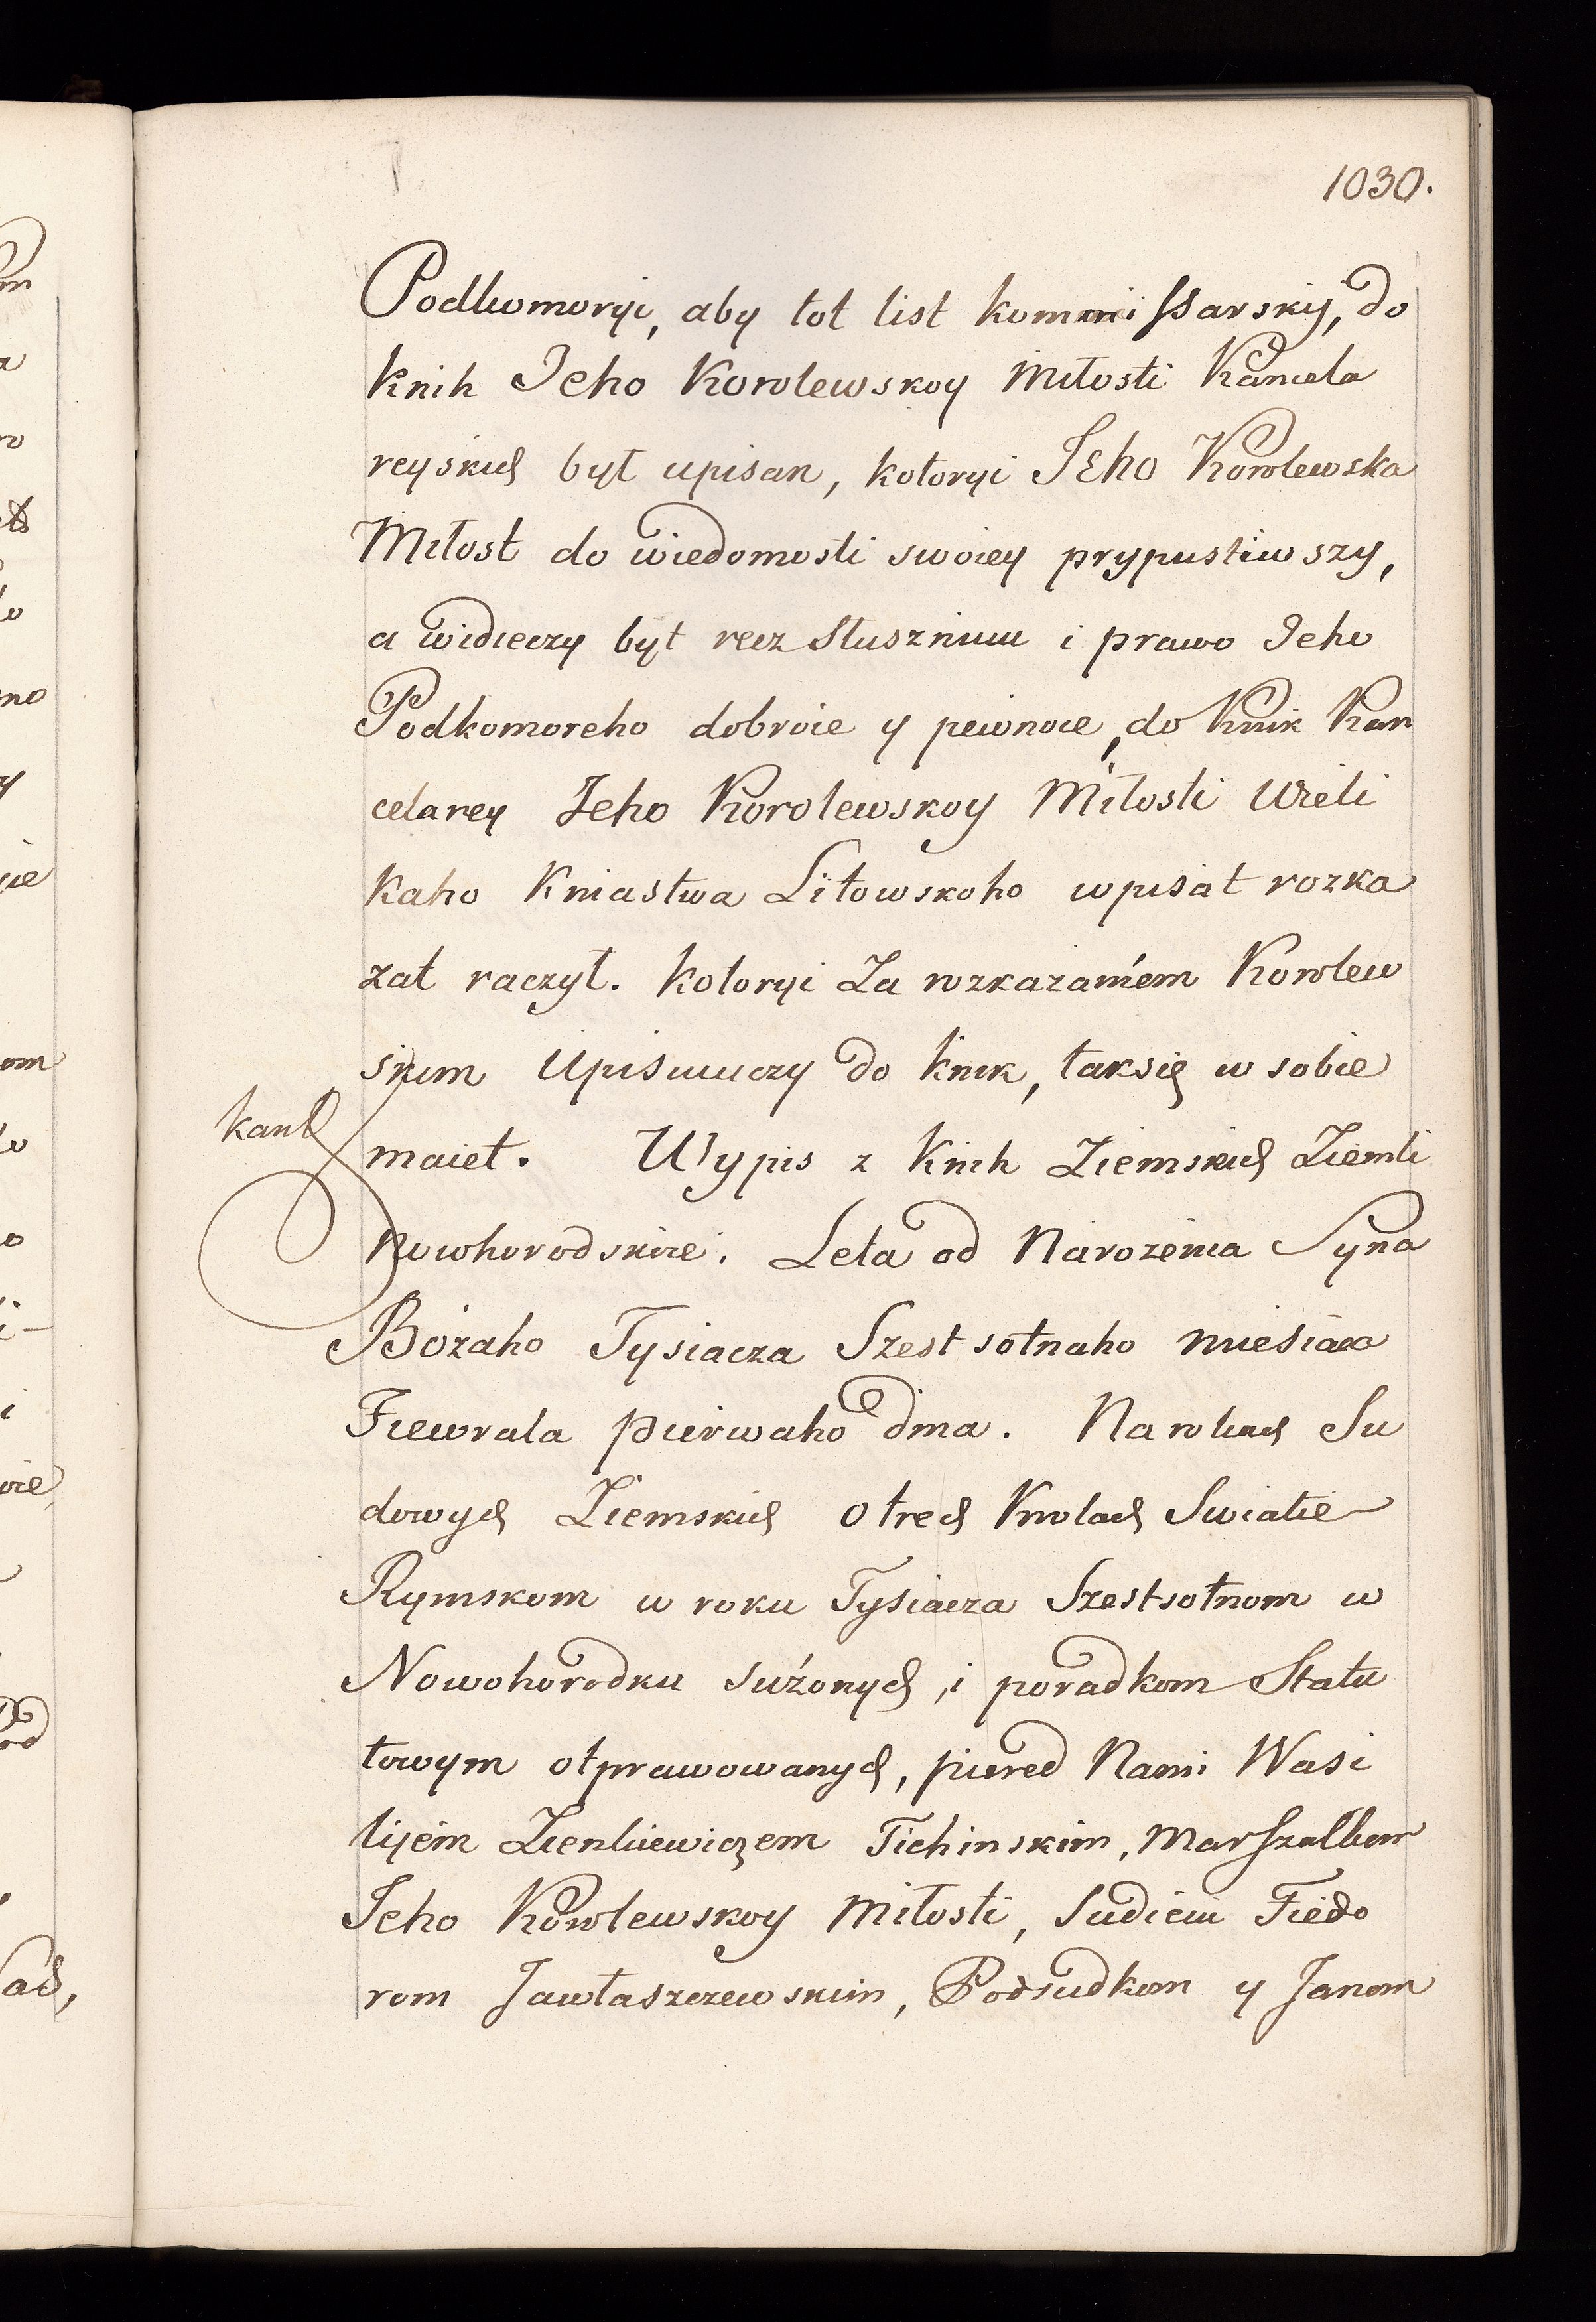 1030.
Podkomoryi, aby tot list kommissarskij, do
knih Jeho Korolewskoy Miłosti Kancela
reyskich był upisan, kotoryi Jeho Korolewska
Miłost do wiedomosti swoiey prypustiwszy,
a widieczy byt recz Słusznuiu i prawo Jeho
Podkomoreho dobroie y pewnoie, do Knik Kan
celarey Jeho Korolewskoy Miłosti Wieli
kaho Kniastwa Litowskoho wpisat rozka
zat raczył. kotoryi Za rozkazaniem Korolew
skim Upisuiuczy do knik, taksię w sobie
maiet. Wypis z Knih Ziemskich Ziemli
Nowhorodskoie. Leta od Narożenia Syna
Bożaho Tysiacza Szestsotnaho miesiaca
Fiewrala pierwaho dnia. Na rokach Su
dowych Ziemskich o trech Krolach Swiatie
Rymskom w roku Tysiacza Szestsotnom w
Nowohorodku sużonych, i poradkom Statu
towym otprawowanych, piered Nami Wasi
lijem Zienkiewiczem Tichinskim, Marszalkom
Jeho Korolewskoy Miłosti, Sudieiu Fiedo
rom Jawłaszczewskim, Podsudkom y Janom